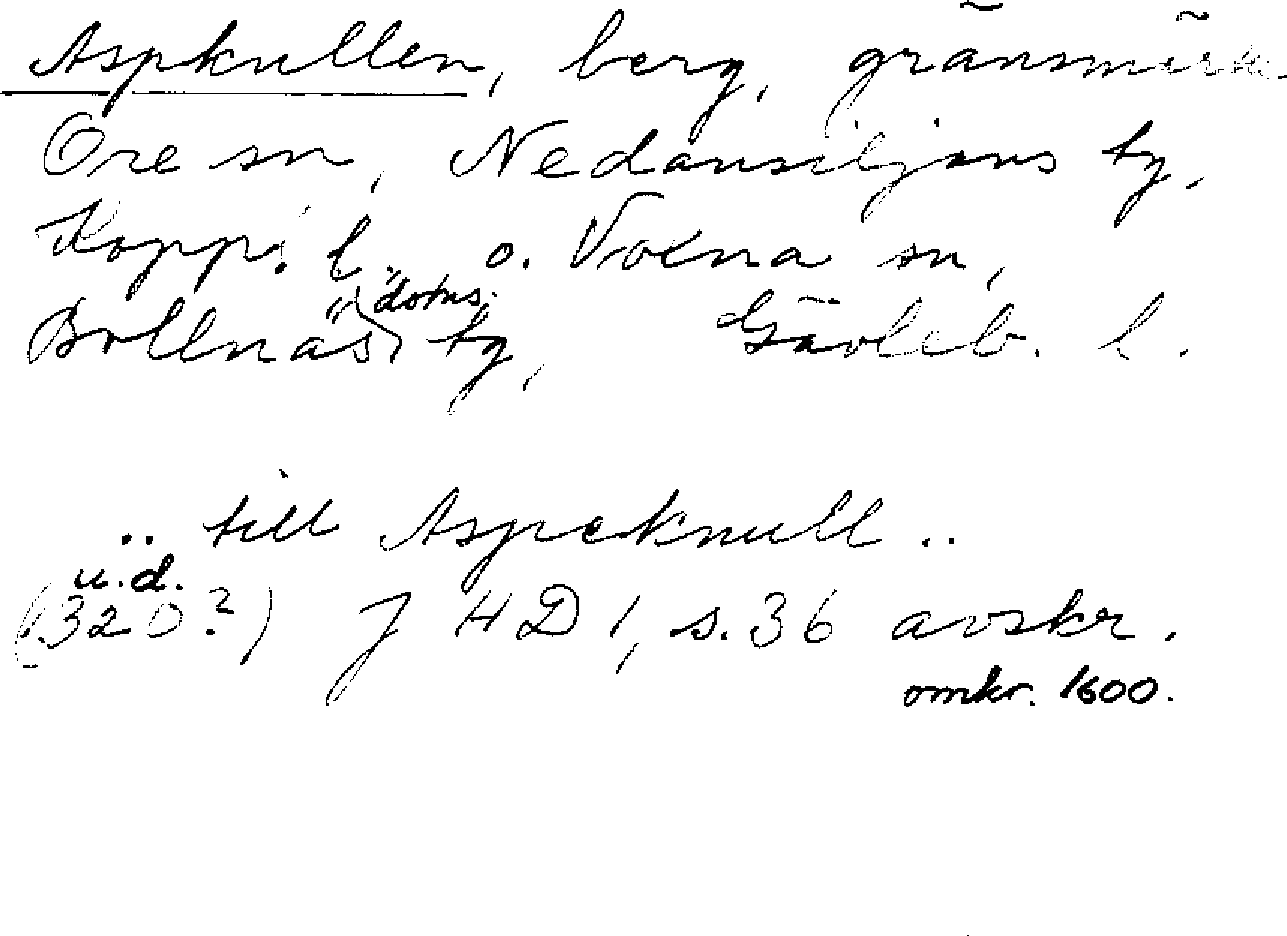 Aspkullen, berg, gränsmärke
Ore sn, Nedansiljans tg,
Kopp. l. o. Voxna sn,
Bollnäs "doms." tg, Gävleb. l.
.. till Aspeknull ..
u.d.
(1320?) JHD 1, s. 36 avskr.
omkr. 1600.